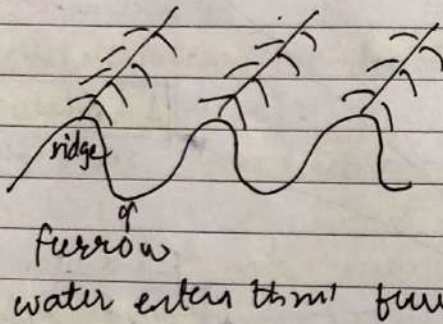 ridge
furrow
water enters thro'